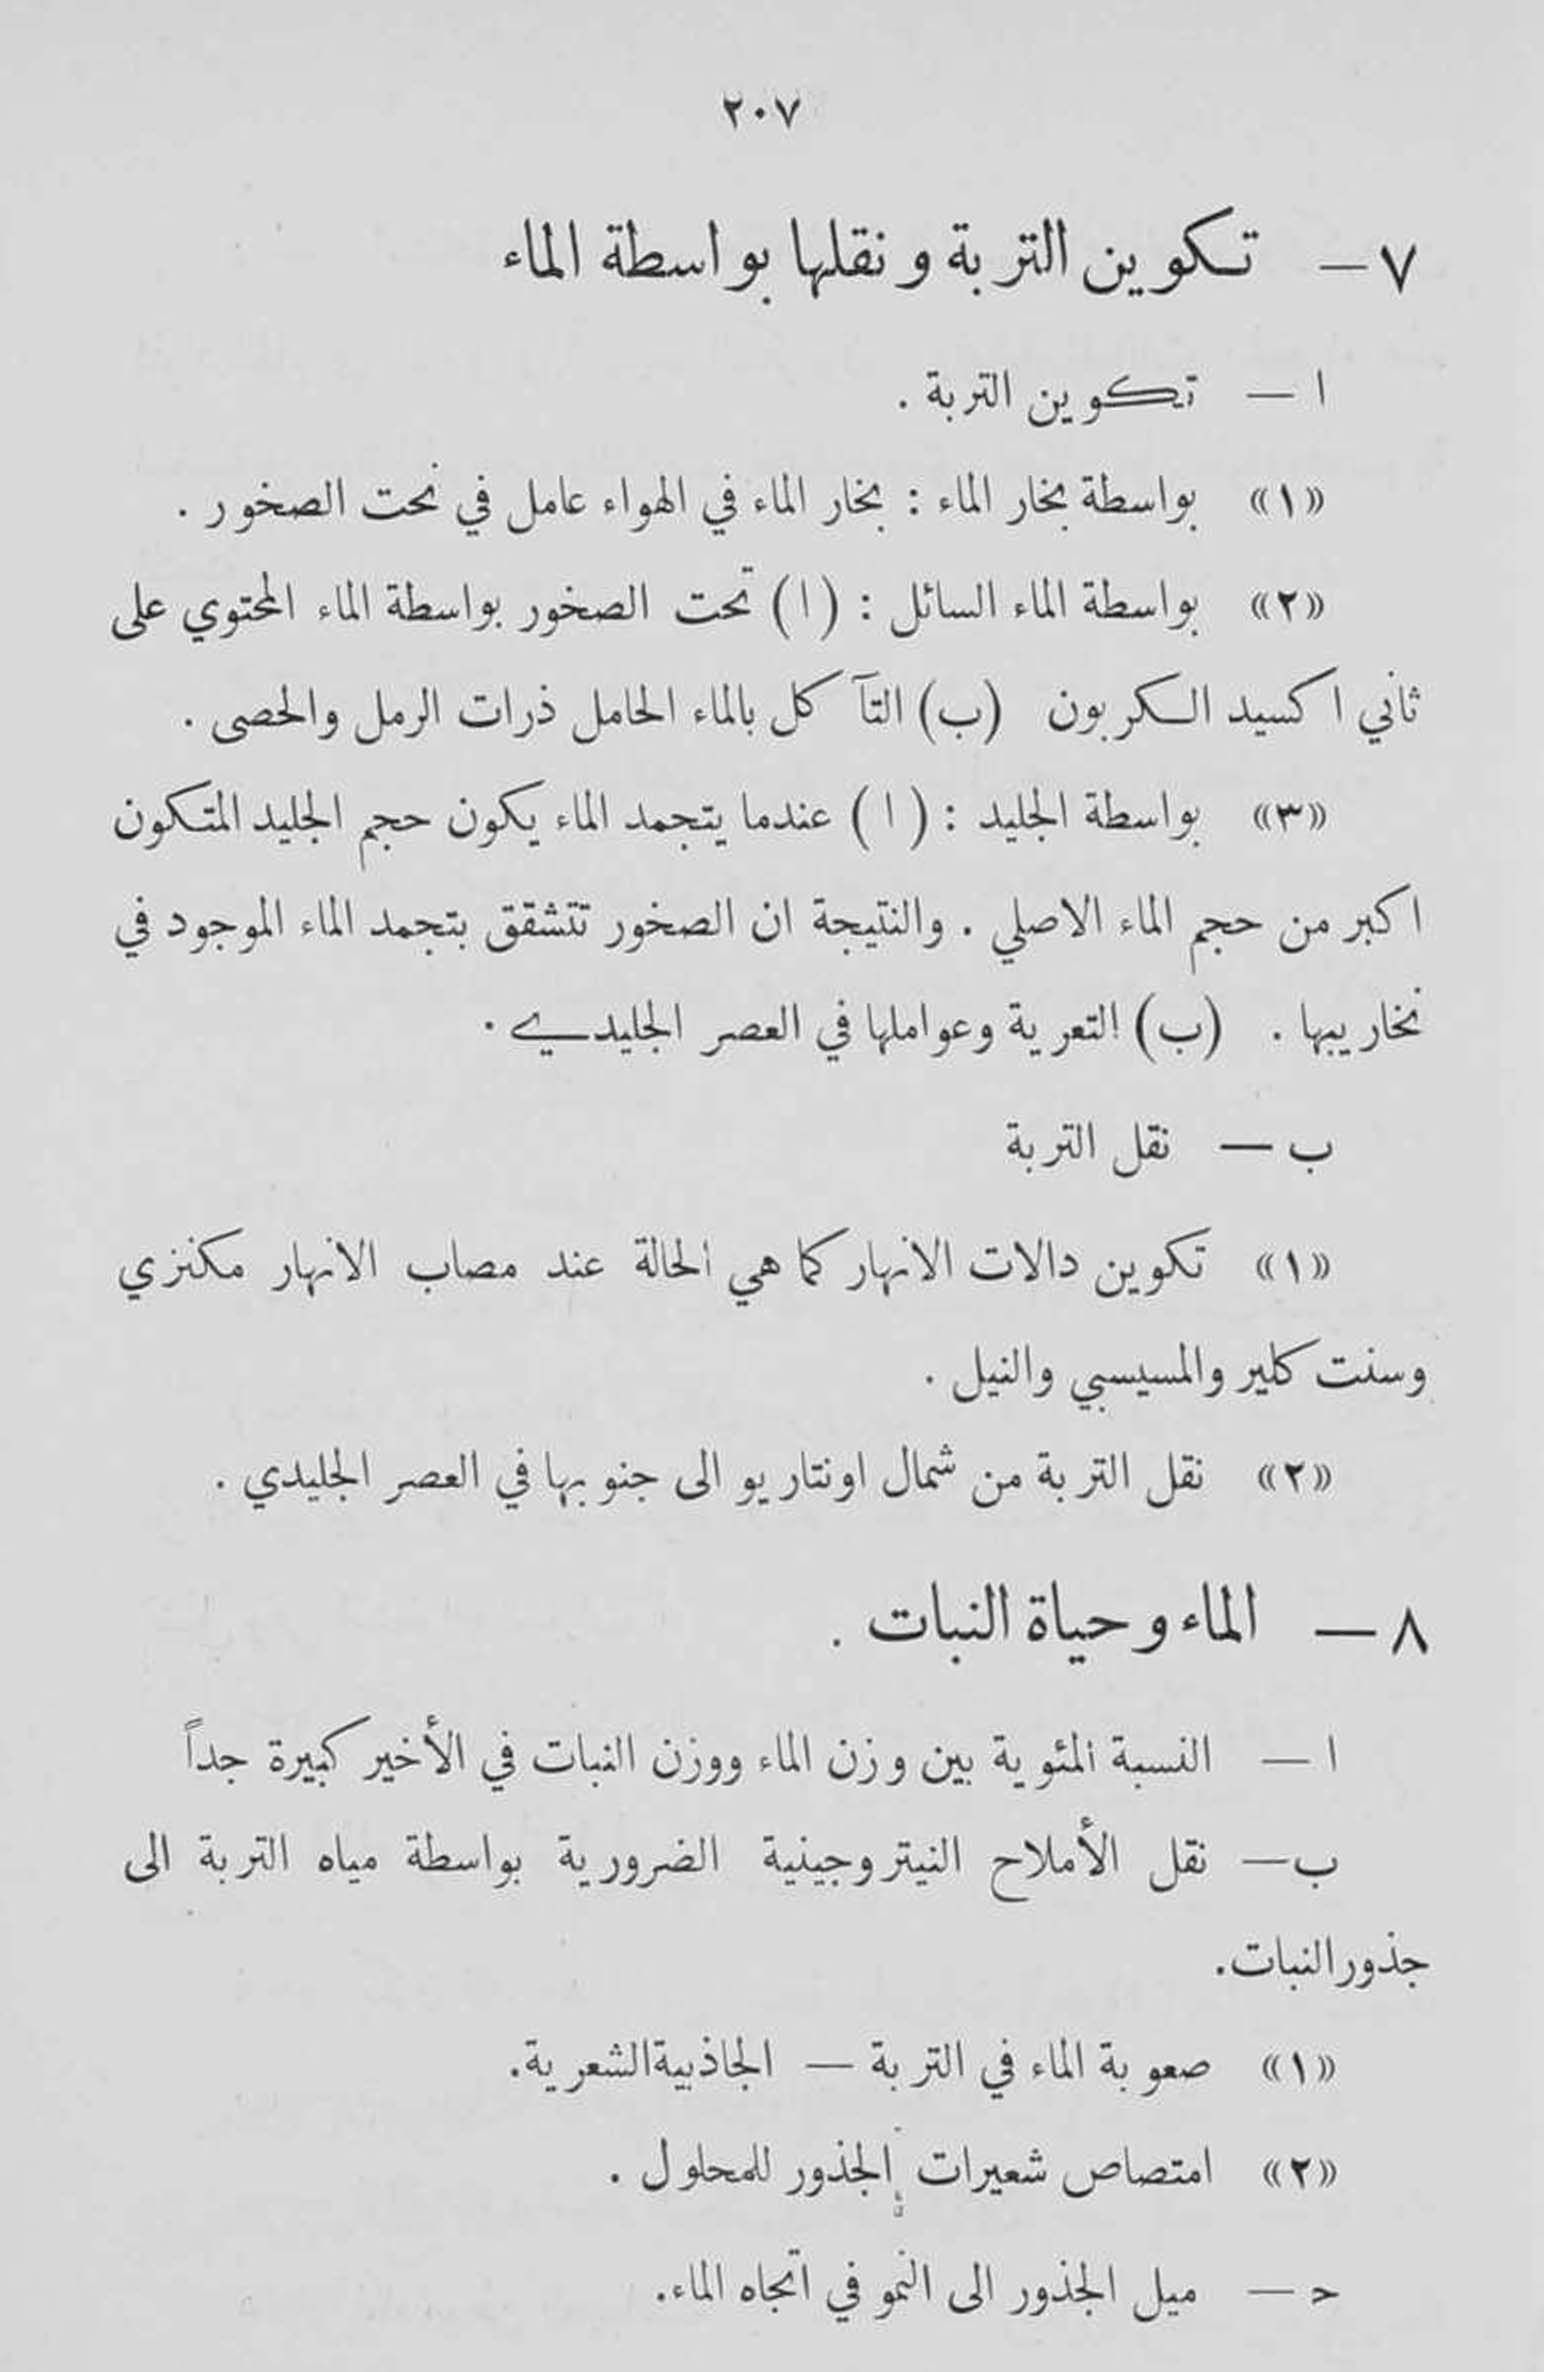 ٢٠٧
٧ — تكوين التربة ونقلها بواسطة الماء
ا — تكوين التربة .
«١» بواسطة بخار الماء : بخار الماء في الهواء عامل في نحت الصخور .
«٢» بواسطة الماء السائل : (ا) تحت الصخور بواسطة الماء المحتوي على
ثاني اكسيد الكربون (ب) التآكل بالماء الحامل ذرات الرمل والحصى .
«٣» بواسطة الجليد : (ا) عندما يتجمد الماء يكون حجم الجليد المتكون
اكبر من حجم الماء الاصلي . والنتيجة ان الصخور تتشقق بتجمد الماء الموجود في
نخاريبها . (ب) التعرية وعواملها في العصر الجليدي .
ب — نقل التربة
«١» تكوين دالات الانهار كما هي الحالة عند مصاب الانهار مكنزي
وسنت كلير والمسيسبي والنيل .
«٢» نقل التربة من شمال اونتاريو الى جنوبها في العصر الجليدي .
٨ — الماء وحياة النبات .
ا — النسبة المئوية بين وزن الماء ووزن النبات في الأخير كبيرة جداً
ب — نقل الأملاح النيتروجينية الضرورية بواسطة مياه التربة الى
جذور النبات.
«١» صعوبة الماء في التربة — الجاذبية الشعرية.
«٢» امتصاص شعيرات الجذور للمحلول .
ح — ميل الجذور الى النمو في اتجاه الماء.